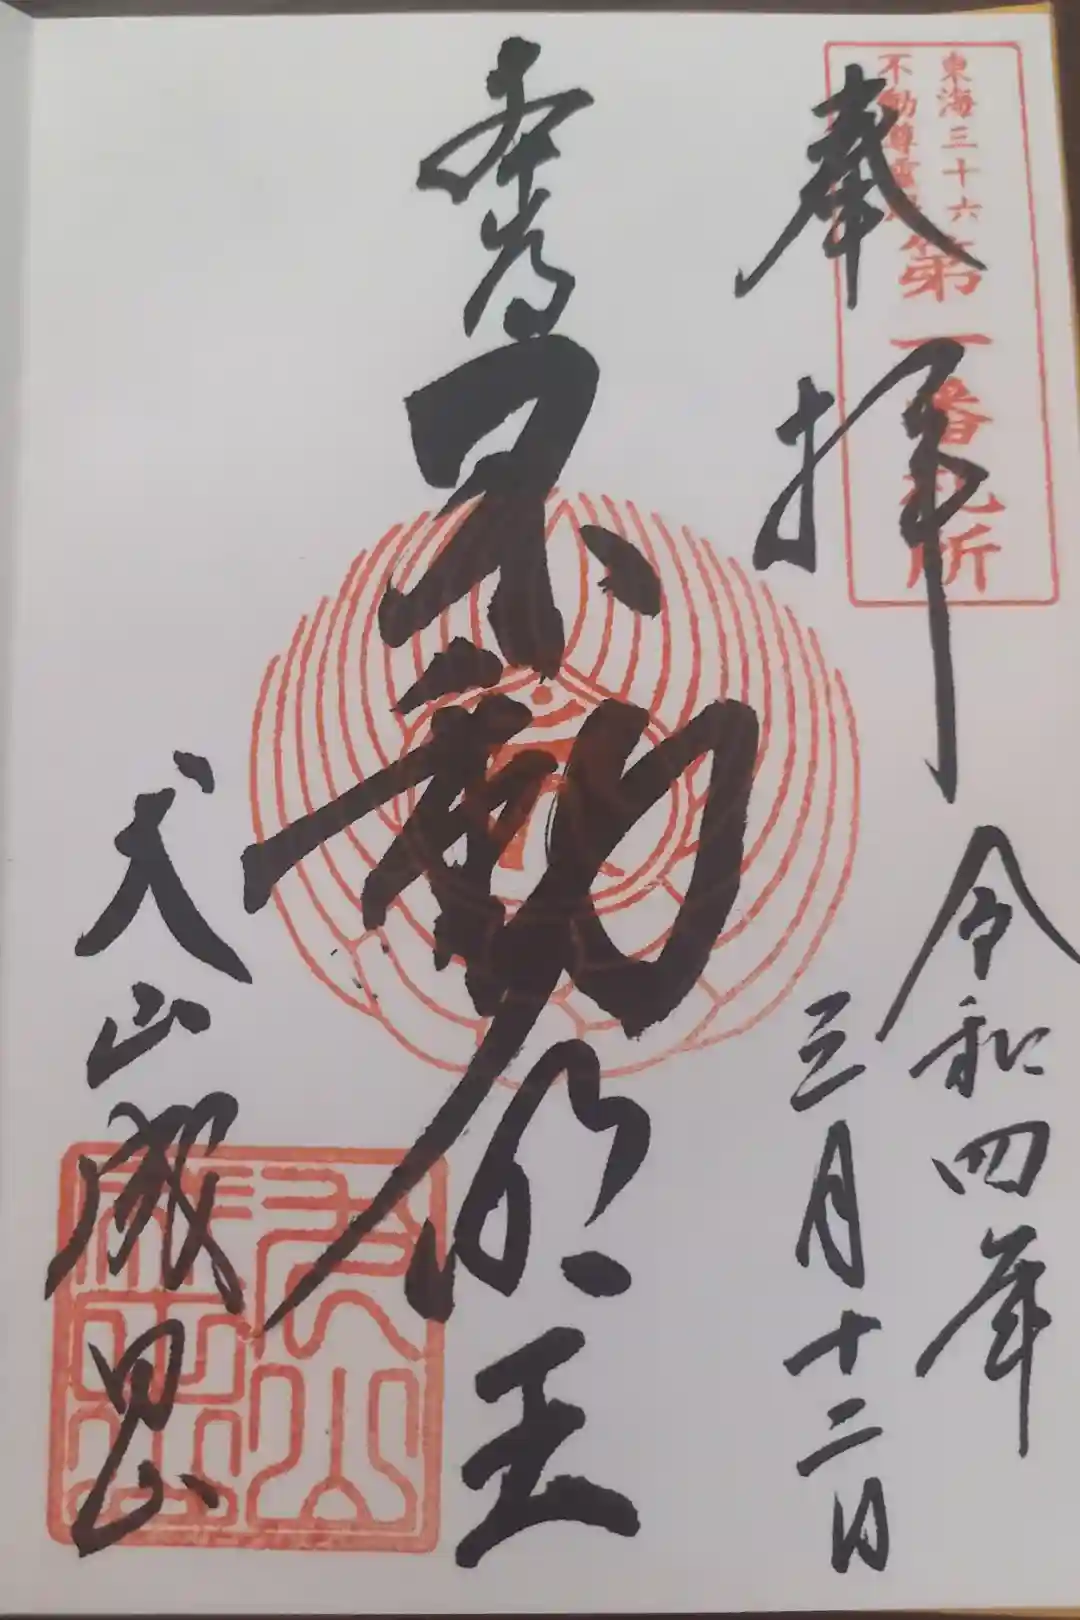 東海三十六
不動尊霊場
第一番札所
奉拝
令和四年
三月十二日
本尊
不動明王
犬山成田山